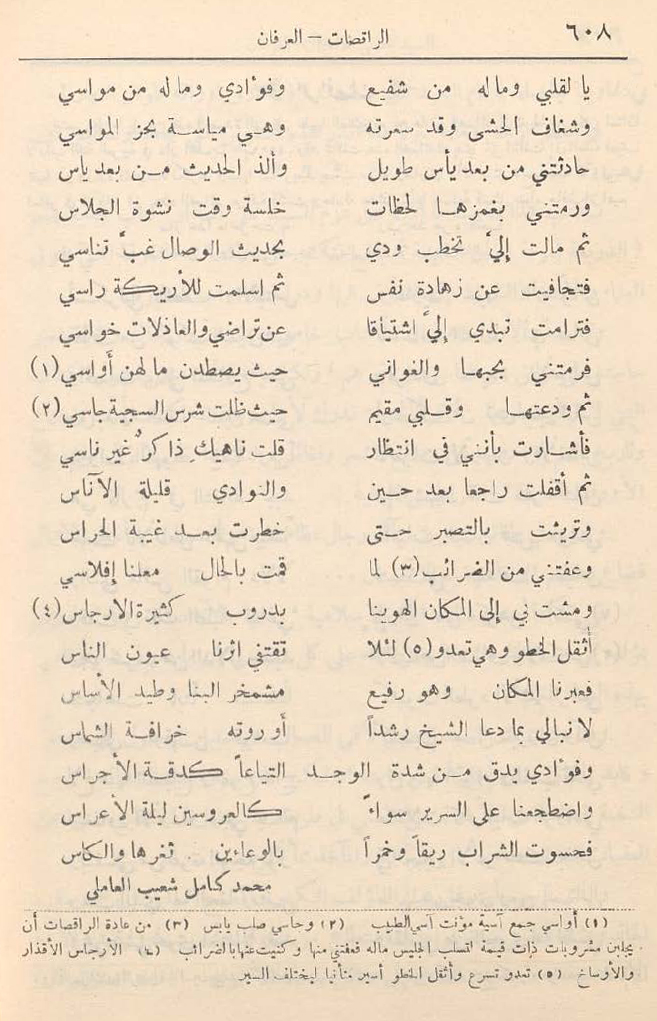 ٦٠٨ الراقصات – العرفان
يا لقلبي وما له من شفيع وفؤادي وما له من مواسي
وشغاف الحشى وقد سعرته وهي مياسة بحز المواسي
حادثتني من بعد يأس طويل وألذ الحديث من بعد ياس
ورمتني بغمزها لحظات خلسة وقت نشوة الجلاس
ثم مالت إليَّ تخطب ودي بحديث الوصال غبَّ تناسي
فتجافيت عن زهادة نفس ثم اسلمت للأريكة راسي
فترامت تبدي إليَّ اشتياقا عن تراضي والعاذلات خواسي
فرمتني بحبها والغواني حيث يصطدن ما لهن أواسي (١)
ثم ودعتها وقلبي مقيم حيث ظلت شرس السجية جاسي (٢)
فأشارت بأنني في انتظار قلت ناهيكِ ذاكرٌ غير ناسي
ثم أقفلت راجعا بعد حين والنوادي قليلة الآناس
وتريثت بالتصبر حتى خطرت بعد غيبة الحراس
وعفتني من الضرائب (٣) لما قمت بالحال معلنا إفلاسي
ومشت بي إلى المكان الهوينا بدروب كثيرة الارجاس (٤)
أثقل الخطو وهي تعدو (٥) لئلا تقتفي اثرنا عيون الناس
فعبرنا المكان وهو رفيع مشمخر البنا وطيد الأساس
لا نبالي بما دعا الشيخ رشداً أو روته خرافة الشماس
وفؤادي يدق من شدة الوجد التياعاً كدقة الأجراس
واضطجعنا على السرير سواءً كالعروسين ليلة الأعراس
فحسوت الشراب ريقاً وخمراً بالوعاءين . ثغرها والكاس
محمد كامل شعيب العاملي
(١) أواسي جمع آسية مؤنث آسي الطبيب (٢) وجاسي صلب يابس (٣) من عادة الراقصات أن
يجلبن مشروبات ذات قيمة لتسلب الجليس ماله فعفتني منها وكنيت عنها بالضرائب (٤) الأرجاس الأقذار
والأوساخ (٥) تعدو تسرع وأثقل الخطو أسير متأنيا ليختلف السير